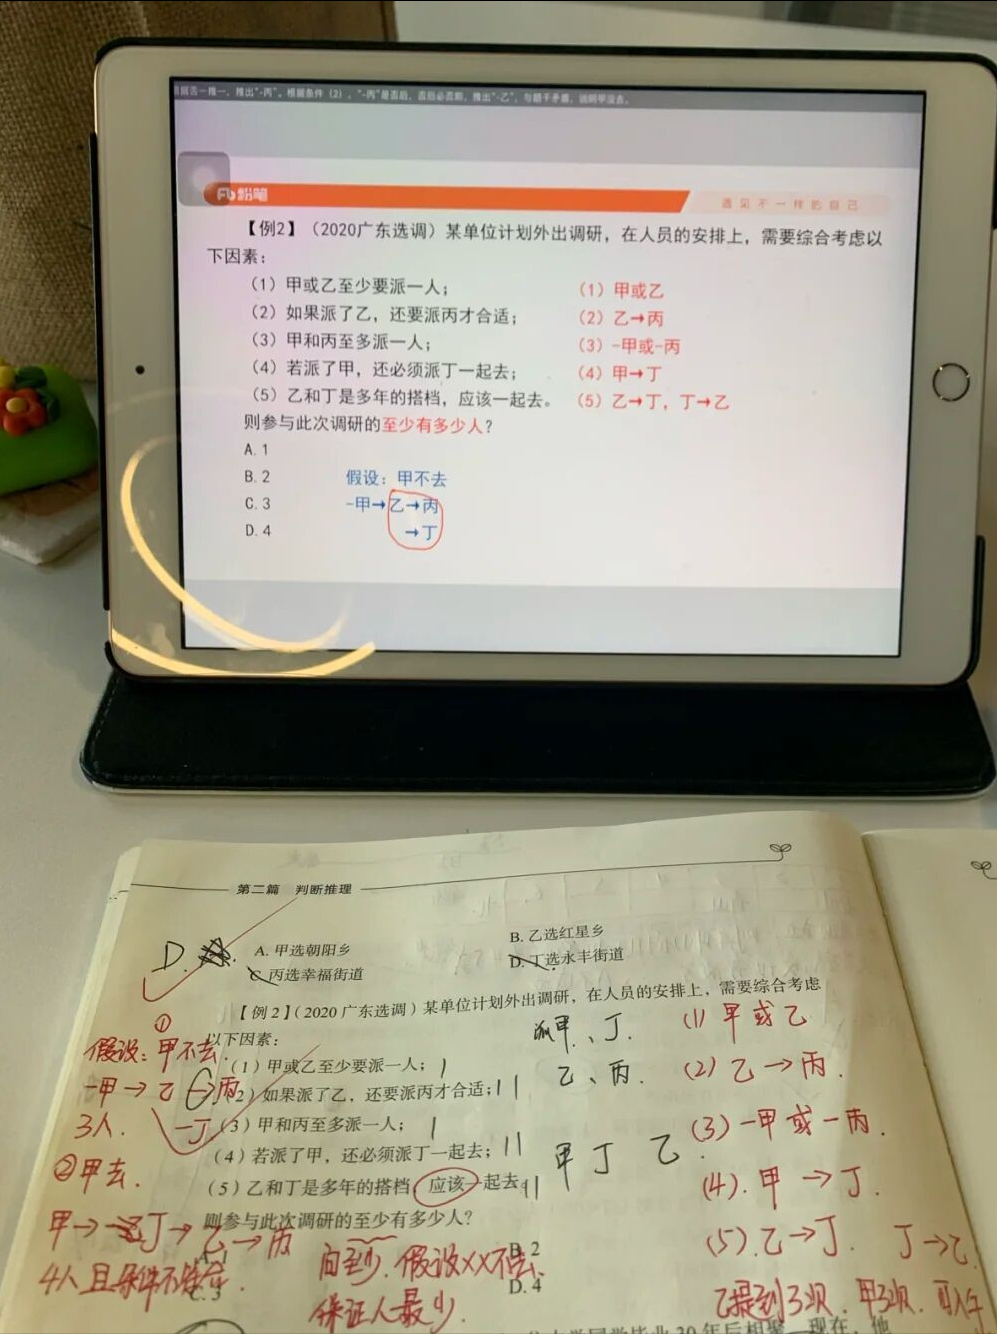 据否一推一，推出“-丙”，根据条件（2），“-丙”是否后，否后必否前，推出“-乙”，与题干矛盾，说明甲没去。
粉笔
遇见不一样的自己
【例2】（2020广东选调）某单位计划外出调研，在人员的安排上，需要综合考虑以
下因素：
（1）甲或乙至少要派一人； （1）甲或乙
（2）如果派了乙，还要派丙才合适； （2）乙→丙
（3）甲和丙至多派一人； （3）-甲或-丙
（4）若派了甲，还必须派丁一起去； （4）甲→丁
（5）乙和丁是多年的搭档，应该一起去。 （5）乙→丁，丁→乙
则参与此次调研的至少有多少人？
A. 1
B. 2 假设：甲不去
C. 3 -甲→乙→丙
D. 4 →丁
第二篇 判断推理
D.
A. 甲选朝阳乡 B. 乙选红星乡
C. 丙选幸福街道 D. 丁选永丰街道
【例 2】（2020 广东选调）某单位计划外出调研，在人员的安排上，需要综合考虑
以下因素：
（1）甲或乙至少要派一人；
（2）如果派了乙，还要派丙才合适；
（3）甲和丙至多派一人；
（4）若派了甲，还必须派丁一起去；
（5）乙和丁是多年的搭档，应该一起去。
则参与此次调研的至少有多少人？
A. 1 B. 2
C. 3 D. 4
①
假设：甲不去.
一甲→乙→丙
→丁
3人.
②甲去.
甲→丁→乙→丙
4人且条件不符合.
派甲、丁.
乙、丙.
甲丁 乙.
(1) 甲或乙
(2) 乙→丙.
(3) 一甲或一丙.
(4). 甲→丁.
(5). 乙→丁. 丁→乙.
问至少. 假设XX不去.
保证人最少.
乙提到3次. 甲3次.